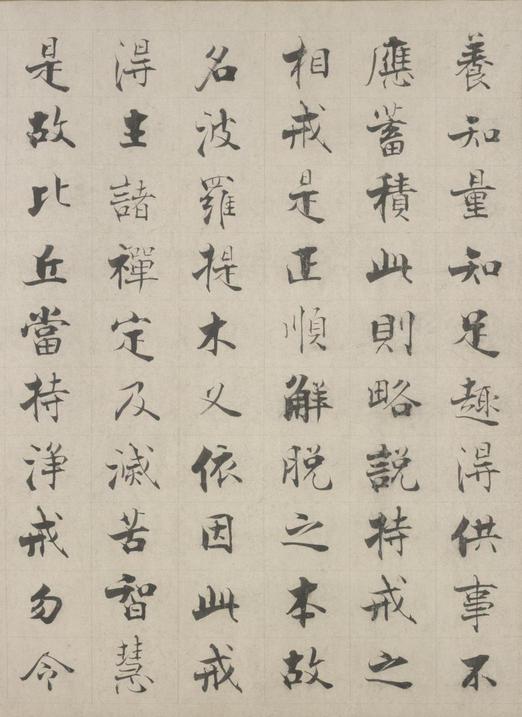 養知量知足趣得供事不
應蓄積此則略説持戒之
相戒是正順解脱之本故
名波羅提木义依因此戒
得生諸禪定及滅苦智慧
是故比丘當持淨戒勿令